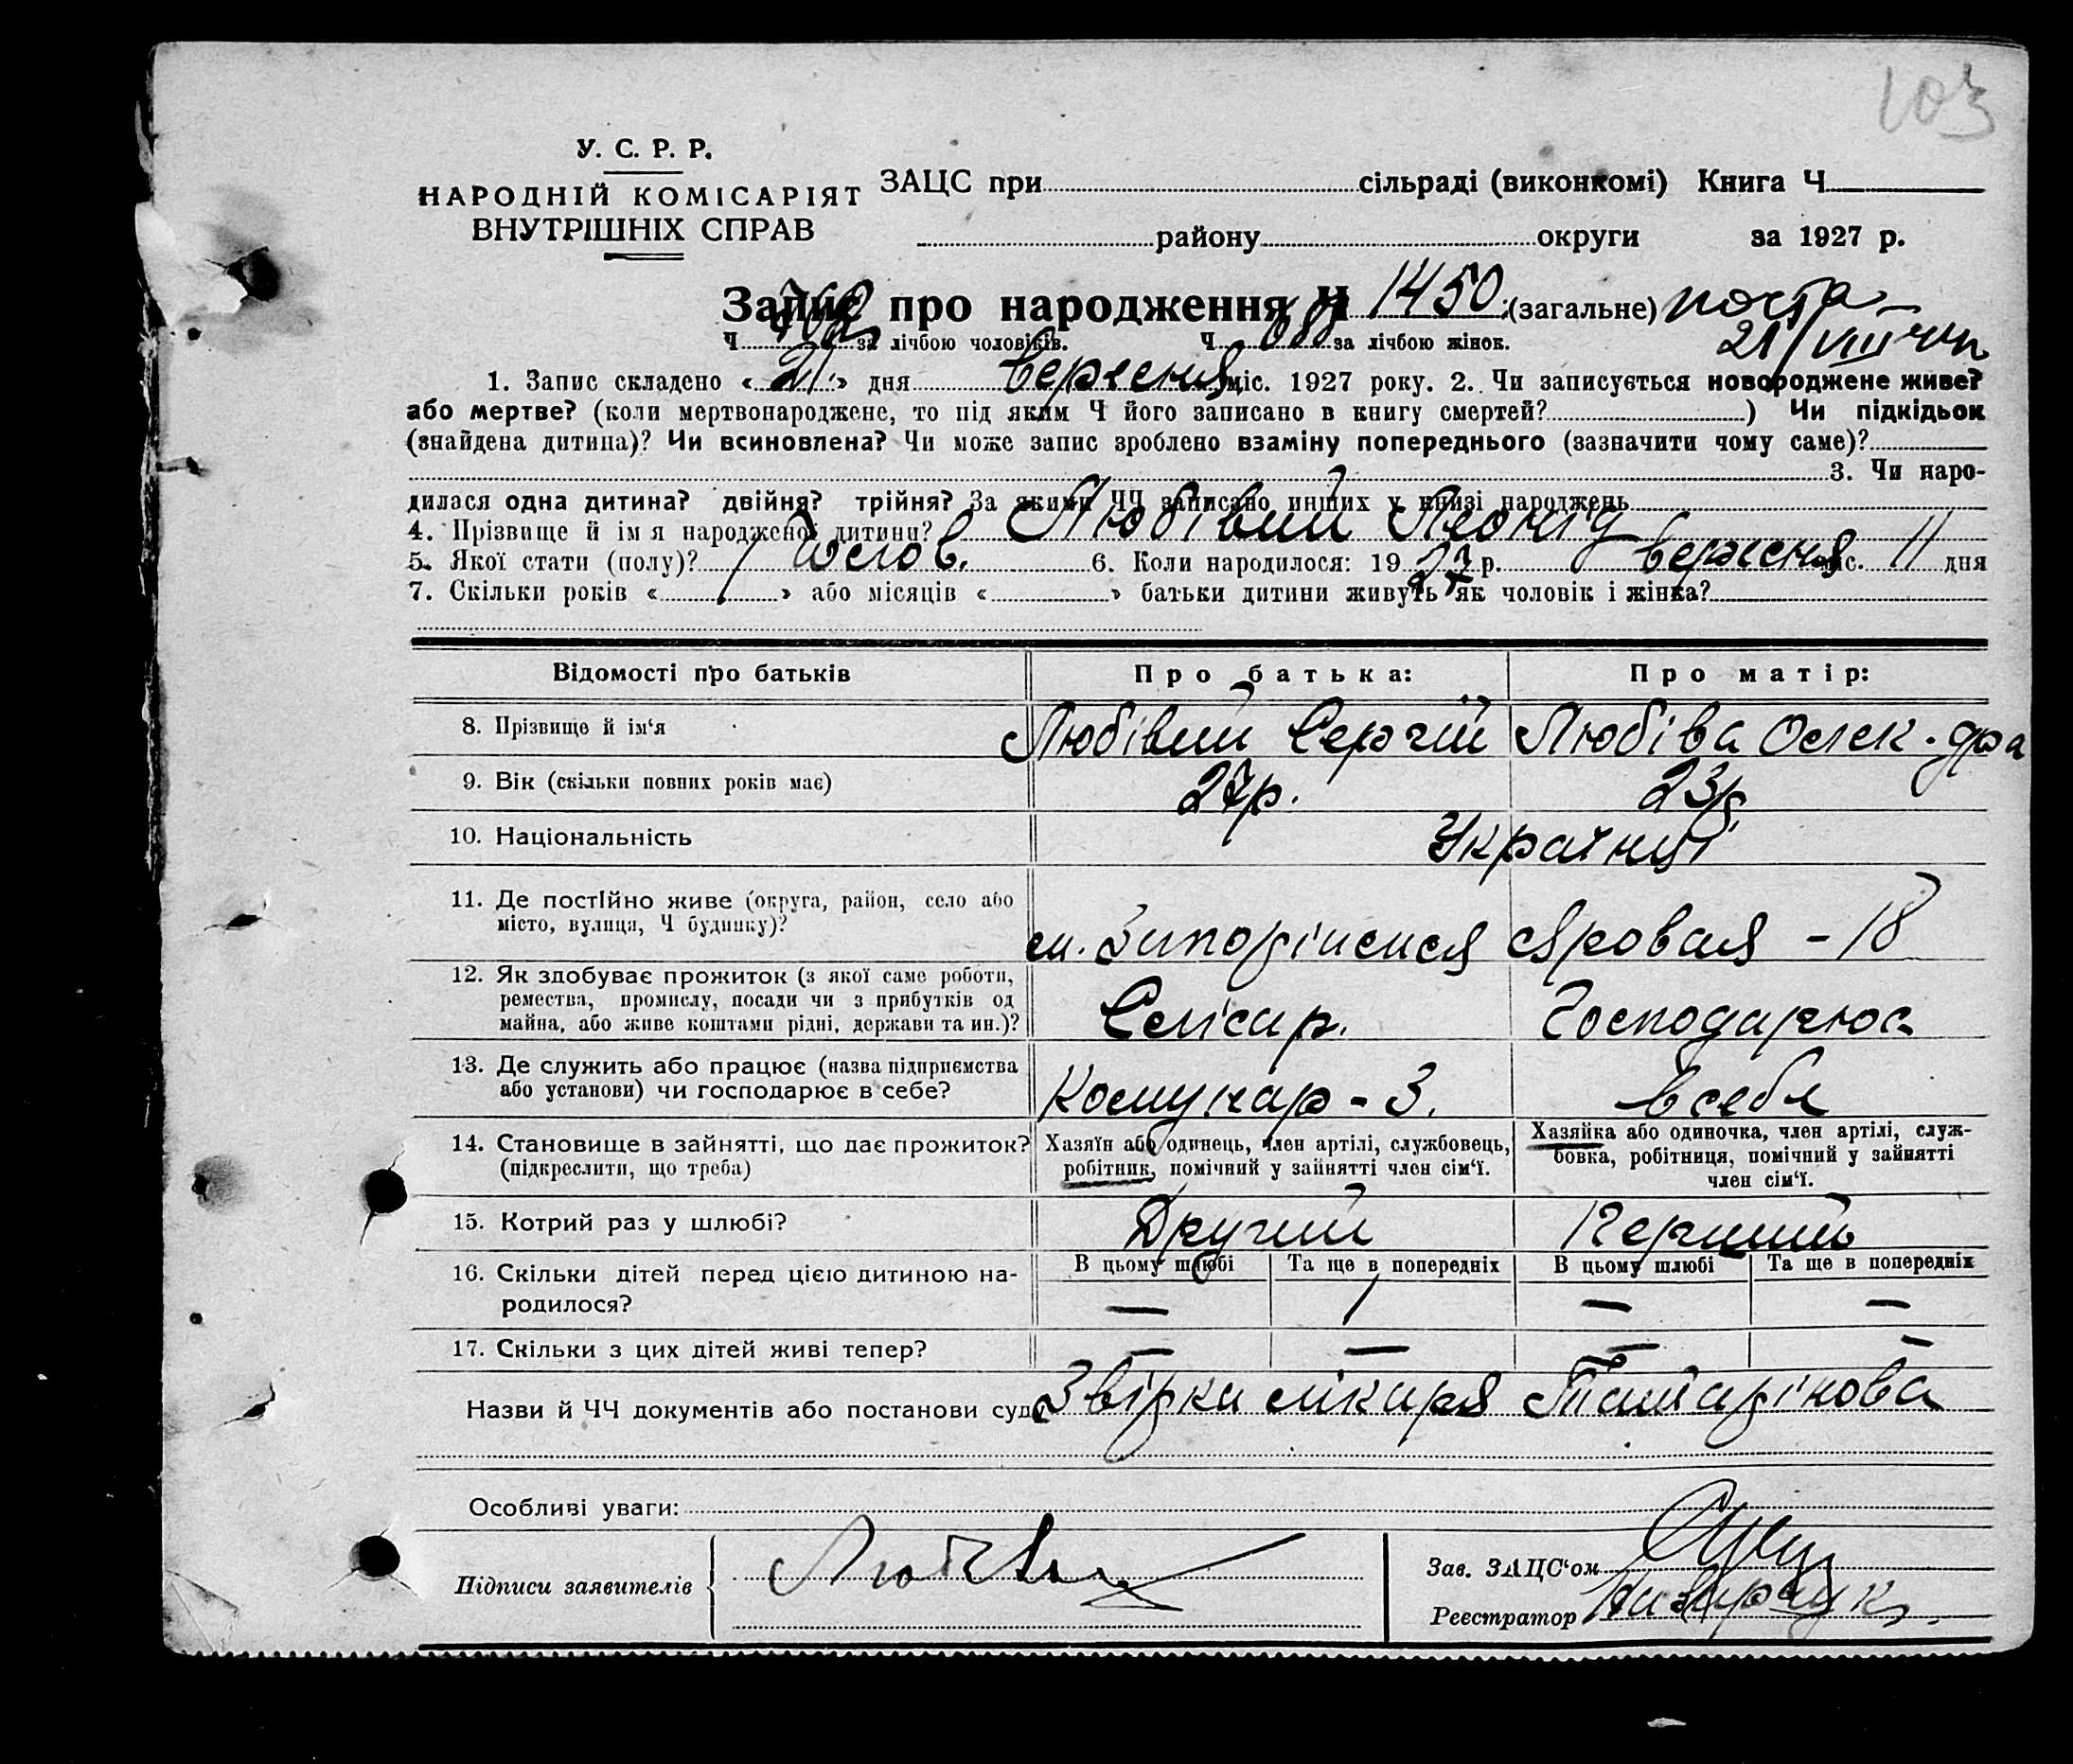 103
У. С. Р. Р.
НАРОДНІЙ КОМІСАРІЯТ
ВНУТРІШНІХ СПРАВ
ЗАЦС при сільраді (виконкомі) Книга Ч
району округи за 1927 р.
Запис про народження Ч 1450 (загальне)
Ч 762 за лічбою чоловіків. Ч 688 за лічбою жінок.
1. Запис складено « 21 » дня Вересня міс. 1927 року. 2. Чи записується новороджене живе?
або мертве? (коли мертвонароджене, то під яким Ч його записано в книгу смертей? ) Чи підкідьок
(знайдена дитина)? Чи всиновлена? Чи може запис зроблено взаміну попереднього (зазначити чому саме)?
3. Чи наро-
дилася одна дитина? двійня? трійня? За якими ЧЧ записано инших у книзі народжень
4. Прізвище й ім я народженої дитини? Любівий Леонід
5. Якої стати (полу)? Чолов. 6. Коли народилося: 19 27 р. Вересня міс. 11 дня
7. Скільки років « » або місяців « » батьки дитини живуть як чоловік і жінка?
Відомості про батьків Про батька: Про матір:
8. Прізвище й ім‘я Любівий Сергій Любіва Олек-дра
9. Вік (скільки повних років має) 27р. 23р.
10. Національність Українці
11. Де постійно живе (округа, район, село або
місто, вулиця, Ч будинку)? м. Запоріжжя Яровая - 18
12. Як здобуває прожиток (з якої саме роботи,
ремества, промислу, посади чи з прибутків од
майна, або живе коштами рідні, держави та ин.)? Слюсар. Господарює
13. Де служить або працює (назва підприємства
або установи) чи господарює в себе? Комунар - З. в себе
14. Становище в зайнятті, що дає прожиток?
(підкреслити, що треба)
Хазяїн або одинець, член артілі, службовець,
робітник, помічний у зайнятті член сім‘ї.
Хазяйка або одиночка, член артілі, служ-
бовка, робітниця, помічний у зайнятті
член сім‘ї.
15. Котрий раз у шлюбі? Другий Перший
В цьому шлюбі Та ще в попередніх В цьому шлюбі Та ще в попередніх
16. Скільки дітей перед цією дитиною на-
родилося? — 1 — —
17. Скільки з цих дітей живі тепер? — — — —
Назви й ЧЧ документів або постанови суду Звірка лікаря Татарінова
Особливі уваги:
Підписи заявителів
Зав. ЗАЦС‘ом
Реєстратор